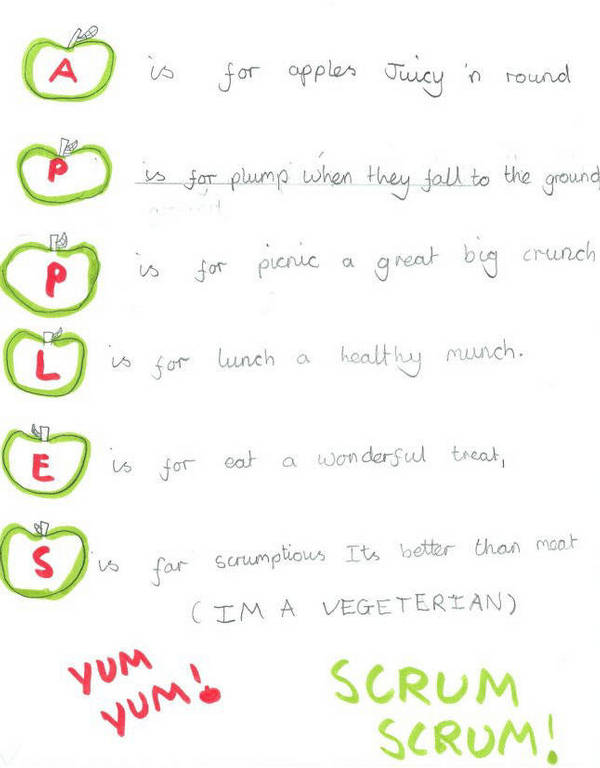 A is for apples Juicy 'n round
P is for plump when they fall to the ground
P is for picnic a great big crunch
L is for lunch a healthy munch.
E is for eat a wonderful treat,
S is for scrumptious Its better than meat
(IM A VEGETERIAN)
YUM
YUM!
SCRUM
SCRUM!